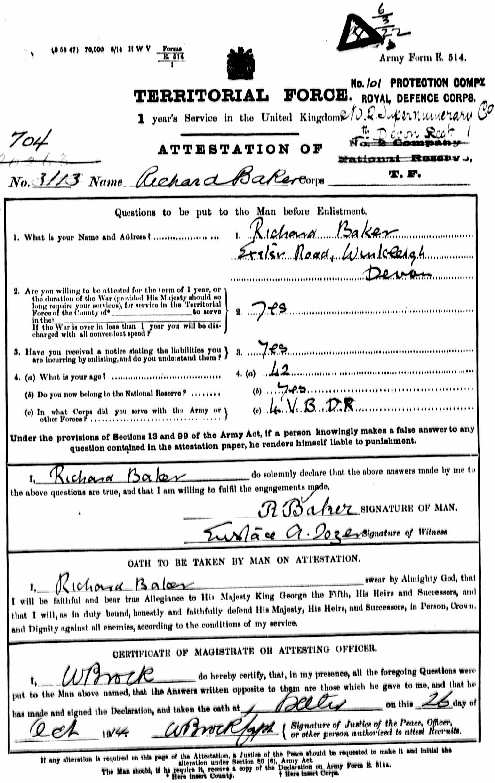 6
3
22
(3 55 47) 70,000 8/14 H W V Forms
E. 514
1
Army Form E. 514.
No. 101 PROTECTION COMPY.
TERRITORIAL FORCE. ROYAL DEFENCE CORPS.
1 year's Service in the United Kingdom. Supernumerary Co
704 Devon Regt
ATTESTATION OF No. 2 Company
National Reserve,
No. 3113 Name Richard Baker Corps T. F.
Questions to be put to the Man before Enlistment.
1. What is your Name and Address? 1. Richard Baker
Exeter Road, Winkleigh
Devon
2. Are you willing to be attested for the term of 1 year, or
the duration of the War (provided His Majesty should so
long require your services), for service in the Territorial
Force of the County of* to serve
in the†
If the War is over in less than 1 year you will be dis-
charged with all convenient speed? 2. Yes
3. Have you received a notice stating the liabilities you
are incurring by enlisting, and do you understand them? 3. Yes
4. (a) What is your age? 4. (a) 42
(b) Do you now belong to the National Reserve? (b) Yes
(c) In what Corps did you serve with the Army or
other Forces? (c) 4 V. B. D. R
Under the provisions of Sections 13 and 99 of the Army Act, if a person knowingly makes a false answer to any
question contained in the attestation paper, he renders himself liable to punishment.
I, Richard Baker do solemnly declare that the above answers made by me to
the above questions are true, and that I am willing to fulfil the engagements made.
R Baker SIGNATURE OF MAN.
Eustace A. Dozer Signature of Witness
OATH TO BE TAKEN BY MAN ON ATTESTATION.
I, Richard Baker swear by Almighty God, that
I will be faithful and bear true Allegiance to His Majesty King George the Fifth, His Heirs and Successors, and
that I will, as in duty bound, honestly and faithfully defend His Majesty, His Heirs, and Successors, in Person, Crown,
and Dignity against all enemies, according to the conditions of my service.
CERTIFICATE OF MAGISTRATE OR ATTESTING OFFICER.
I, W Brock do hereby certify, that, in my presence, all the foregoing Questions were
put to the Man above named, that the Answers written opposite to them are those which he gave to me, and that he
has made and signed the Declaration, and taken the oath at on this 26 day of
Oct 1914 W Brock Capt Signature of Justice of the Peace, Officer,
or other person authorized to attest Recruits.
If any alteration is required on this page of the Attestation, a Justice of the Peace should be requested to make it and initial the
alteration under Section 80 (6), Army Act.
The Man should, if he require it, receive a copy of the Declaration on Army Form E. 511a.
* Here insert County. † Here insert Corps.